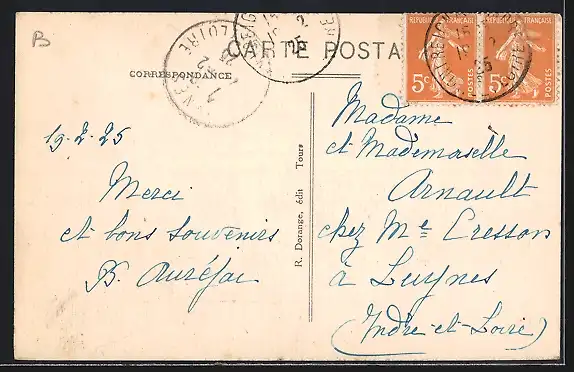 B
CARTE POSTA
CORRESPONDANCE
RÉPUBLIQUE FRANÇAISE
5c POSTES
RÉPUBLIQUE FRANÇAISE
5c POSTES
19-2-25
Merci
et bons souvenirs
R. Dorange, édit Tours
Madame
et Mademoiselle
Arnault
chez Me Cresson
à Luynes
(Indre-et-Loire)